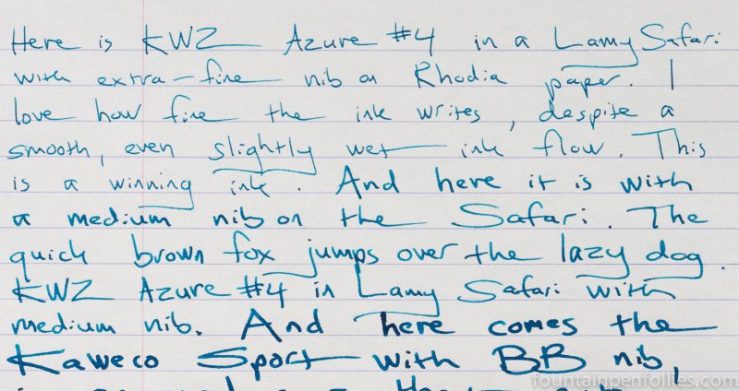 Here is KWZ Azure #4 in a Lamy Safari
with extra-fine nib on Rhodia paper. I
love how fine the ink writes, despite a
smooth, even slightly wet ink flow. This
is a winning ink. And here it is with
a medium nib on the Safari. The
quick brown fox jumps over the lazy dog.
KWZ Azure #4 in Lamy Safari with
medium nib. And here comes the
Kaweco Sport with BB nib,
fountainpenfollies.com